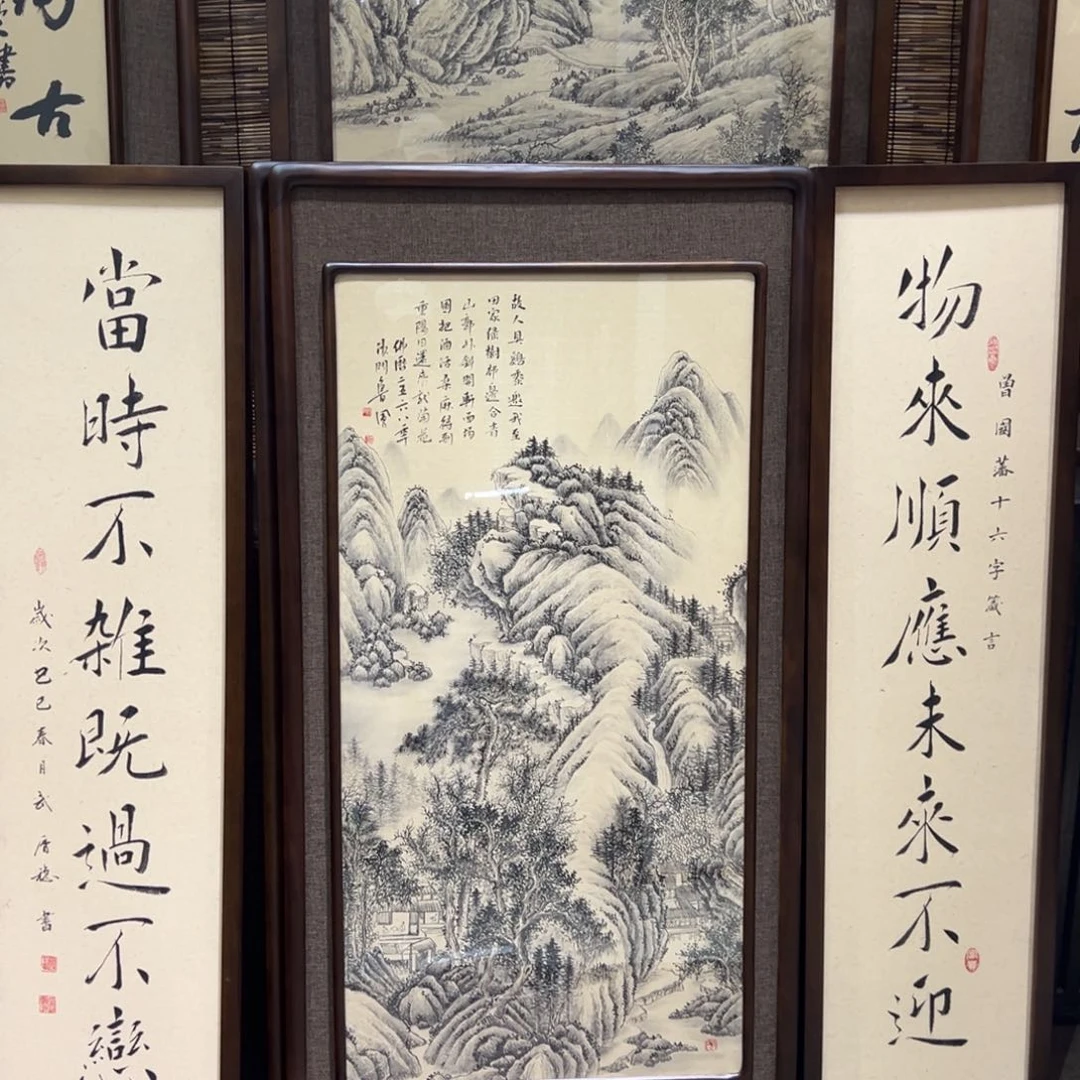 古
書
物來順應未來不迎
曾國藩十六字箴言
故人具鷄黍邀我至
田家綠樹邨邊合青
山郭外斜開軒面場
圃把酒話桑麻待到
重陽日還來就菊花
佛曆二五六八年
津門魯
當時不雜既過不戀
歲次乙巳春月武
書